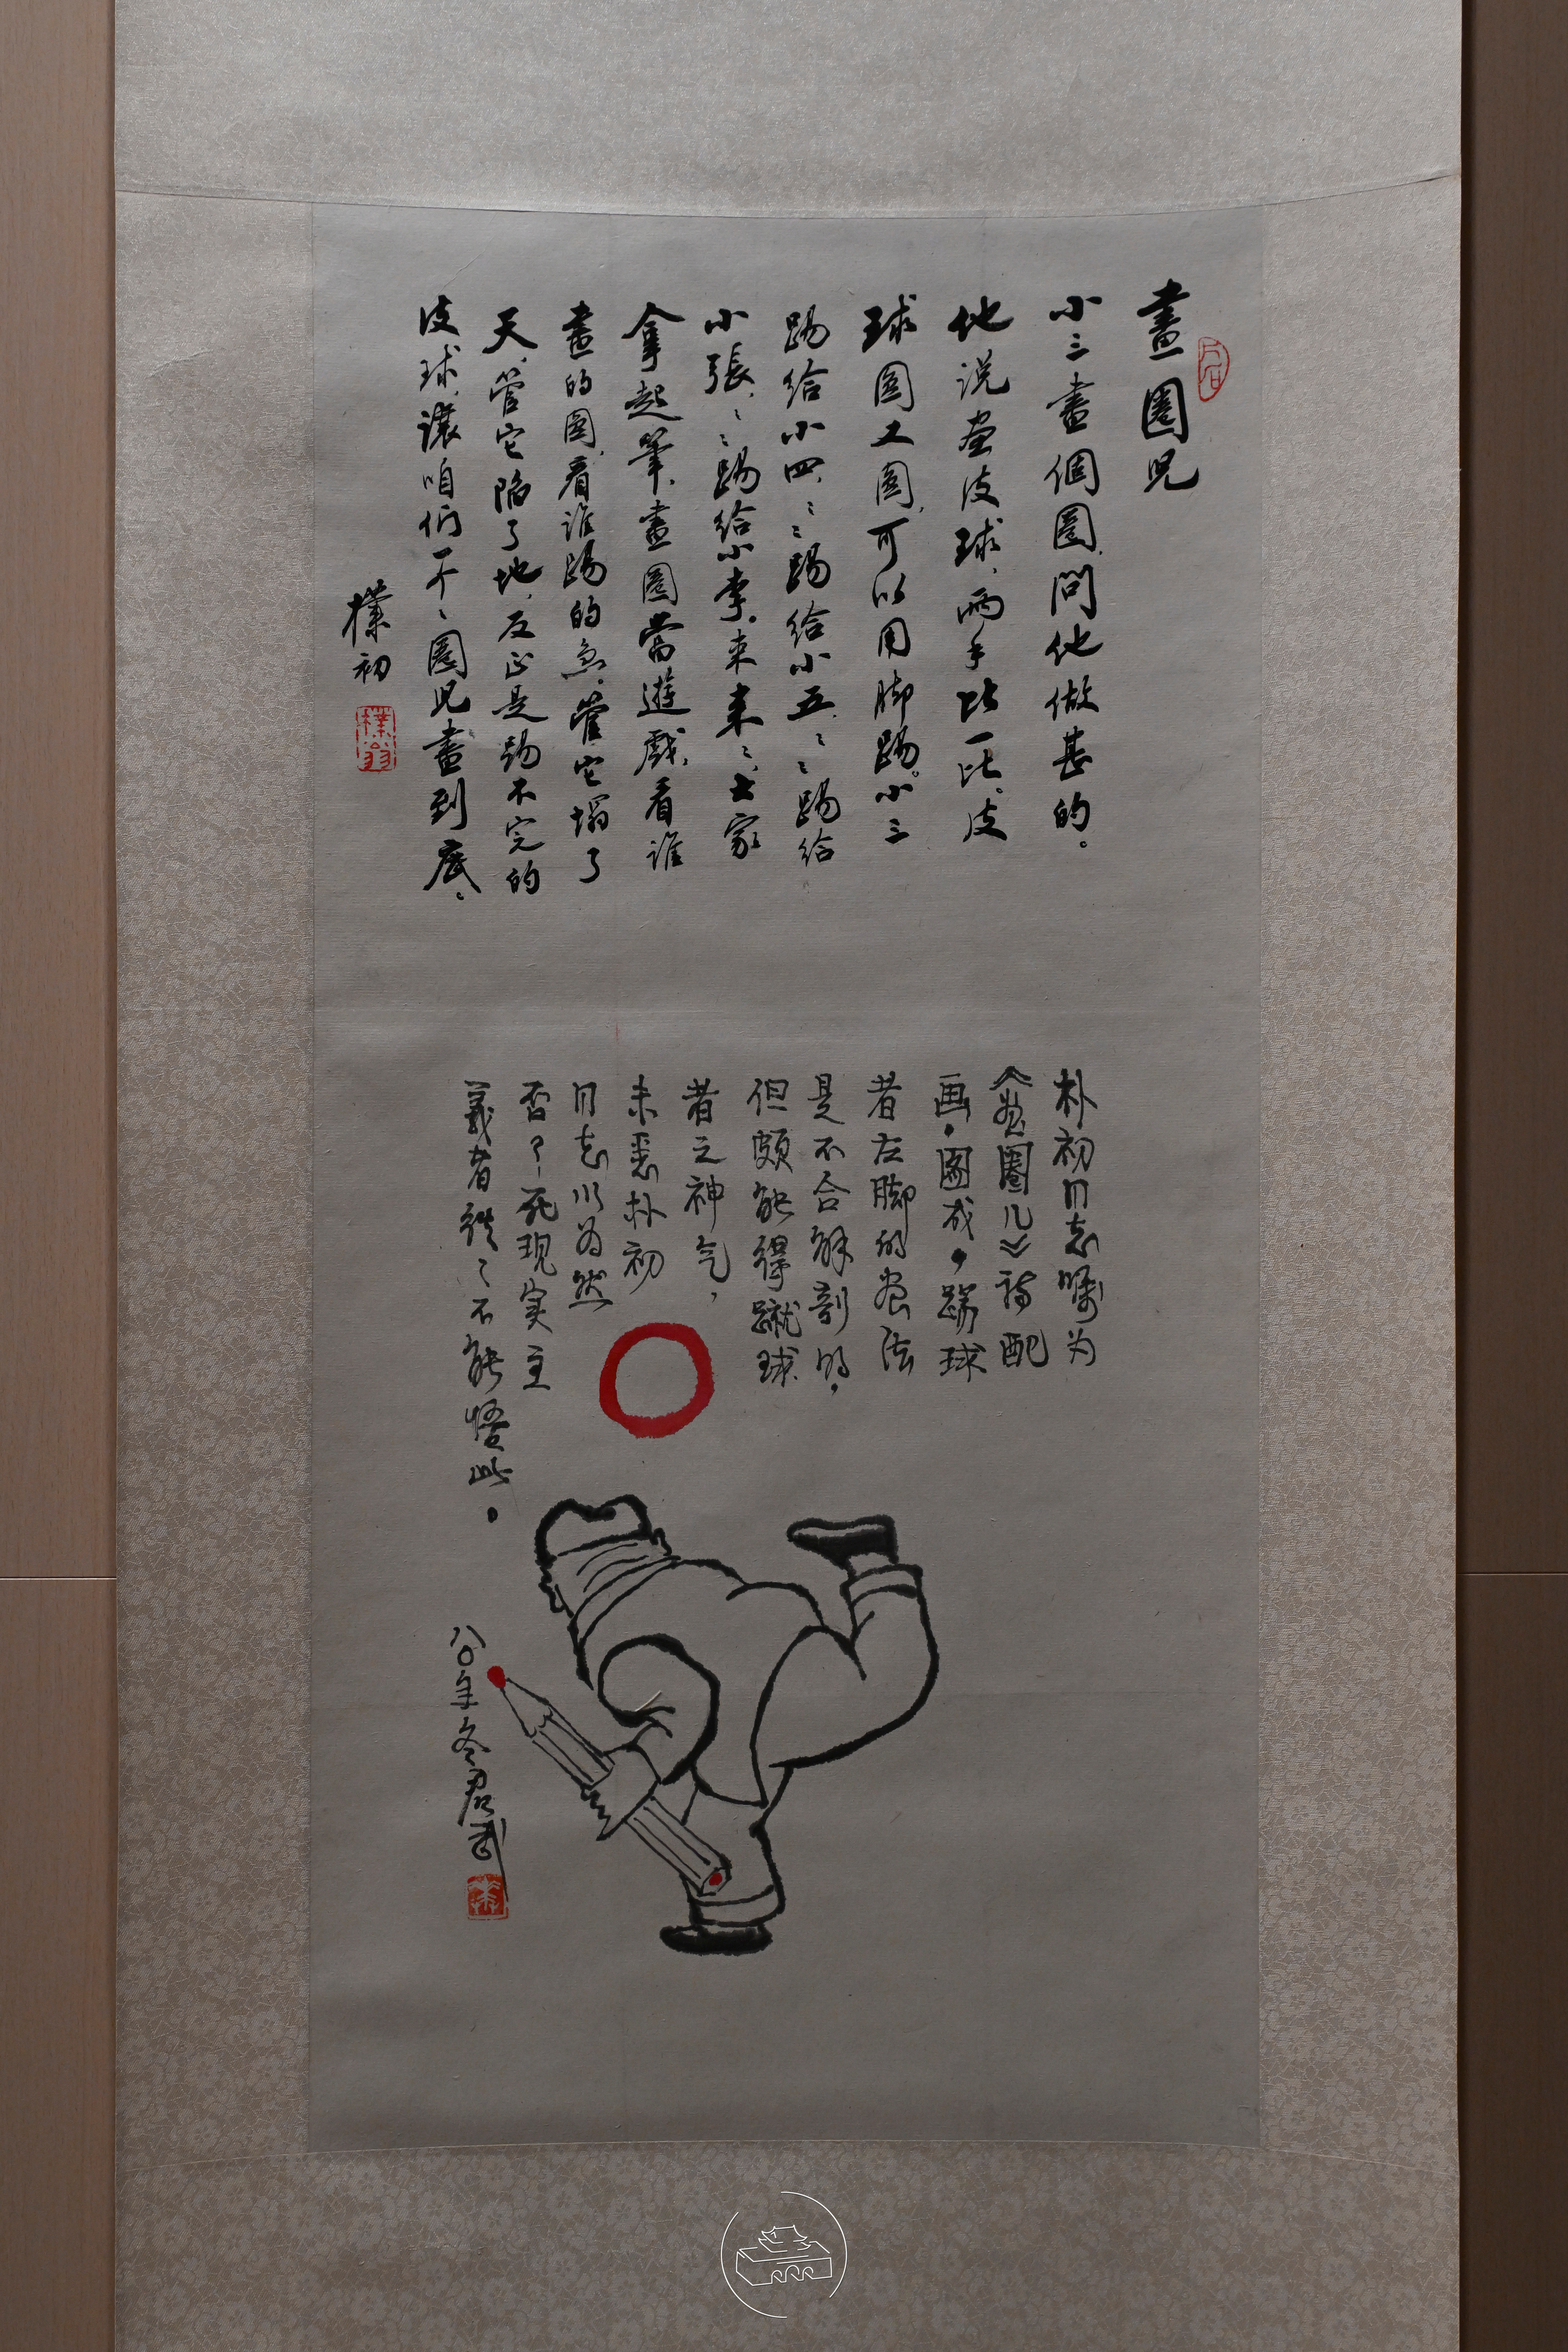 畫圈兒
小三畫個圈,問他做甚的。
他说画皮球,兩手比一比。皮
球圆又圆,可以用脚踢。小三
踢给小四,〻〻踢给小五,〻〻踢给
小張,〻〻踢给小李。来来来〻,大家
拿起筆,畫圈當遊戲。看谁
畫的圆,看谁踢的急。管它塌了
天,管它陷了地,反正是踢不完的
皮球,讓咱们一个〻圈兒畫到底。
樸初
樸翁
朴初同志嘱为
《画圈儿》诗配
画。图成,踢球
者左脚的画法
是不合解剖的。
但颇能得蹴球
者之神气,
未悉朴初
同志以为然
否?死现实主
義者徃〻不能悟此。
八〇年冬君武